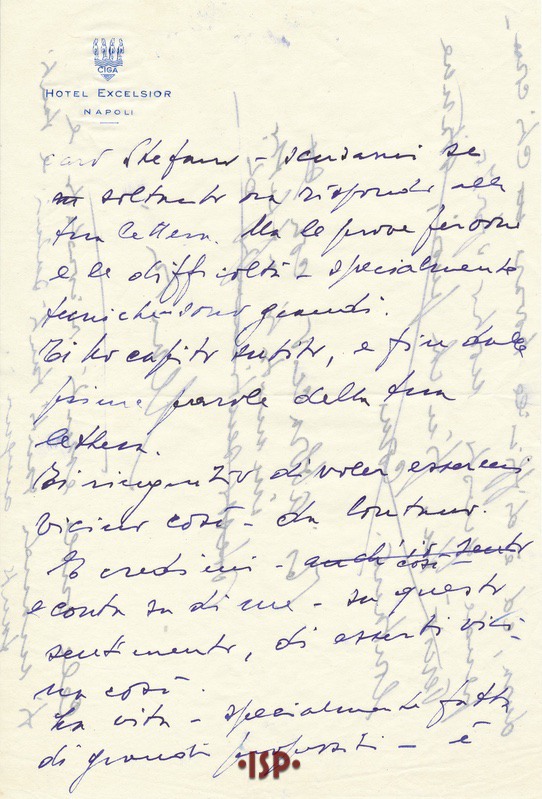 CIGA
HOTEL EXCELSIOR
NAPOLI
caro Stefano - scusami se
soltanto ora rispondo alla
tua lettera. Ma le prove fervono
e le difficoltà - specialmente
tecniche - sono grandi.
Ti ho capito subito, e fin dalle
prime parole della tua
lettera.
Ti ringrazio di voler essermi
vicino così - da lontano.
E credimi - anch'io sento così -
e conta su di me - su questo
sentimento, di esserti vici-
na così.
La vita - specialmente fatta
di grandi propositi - è
•ISP•